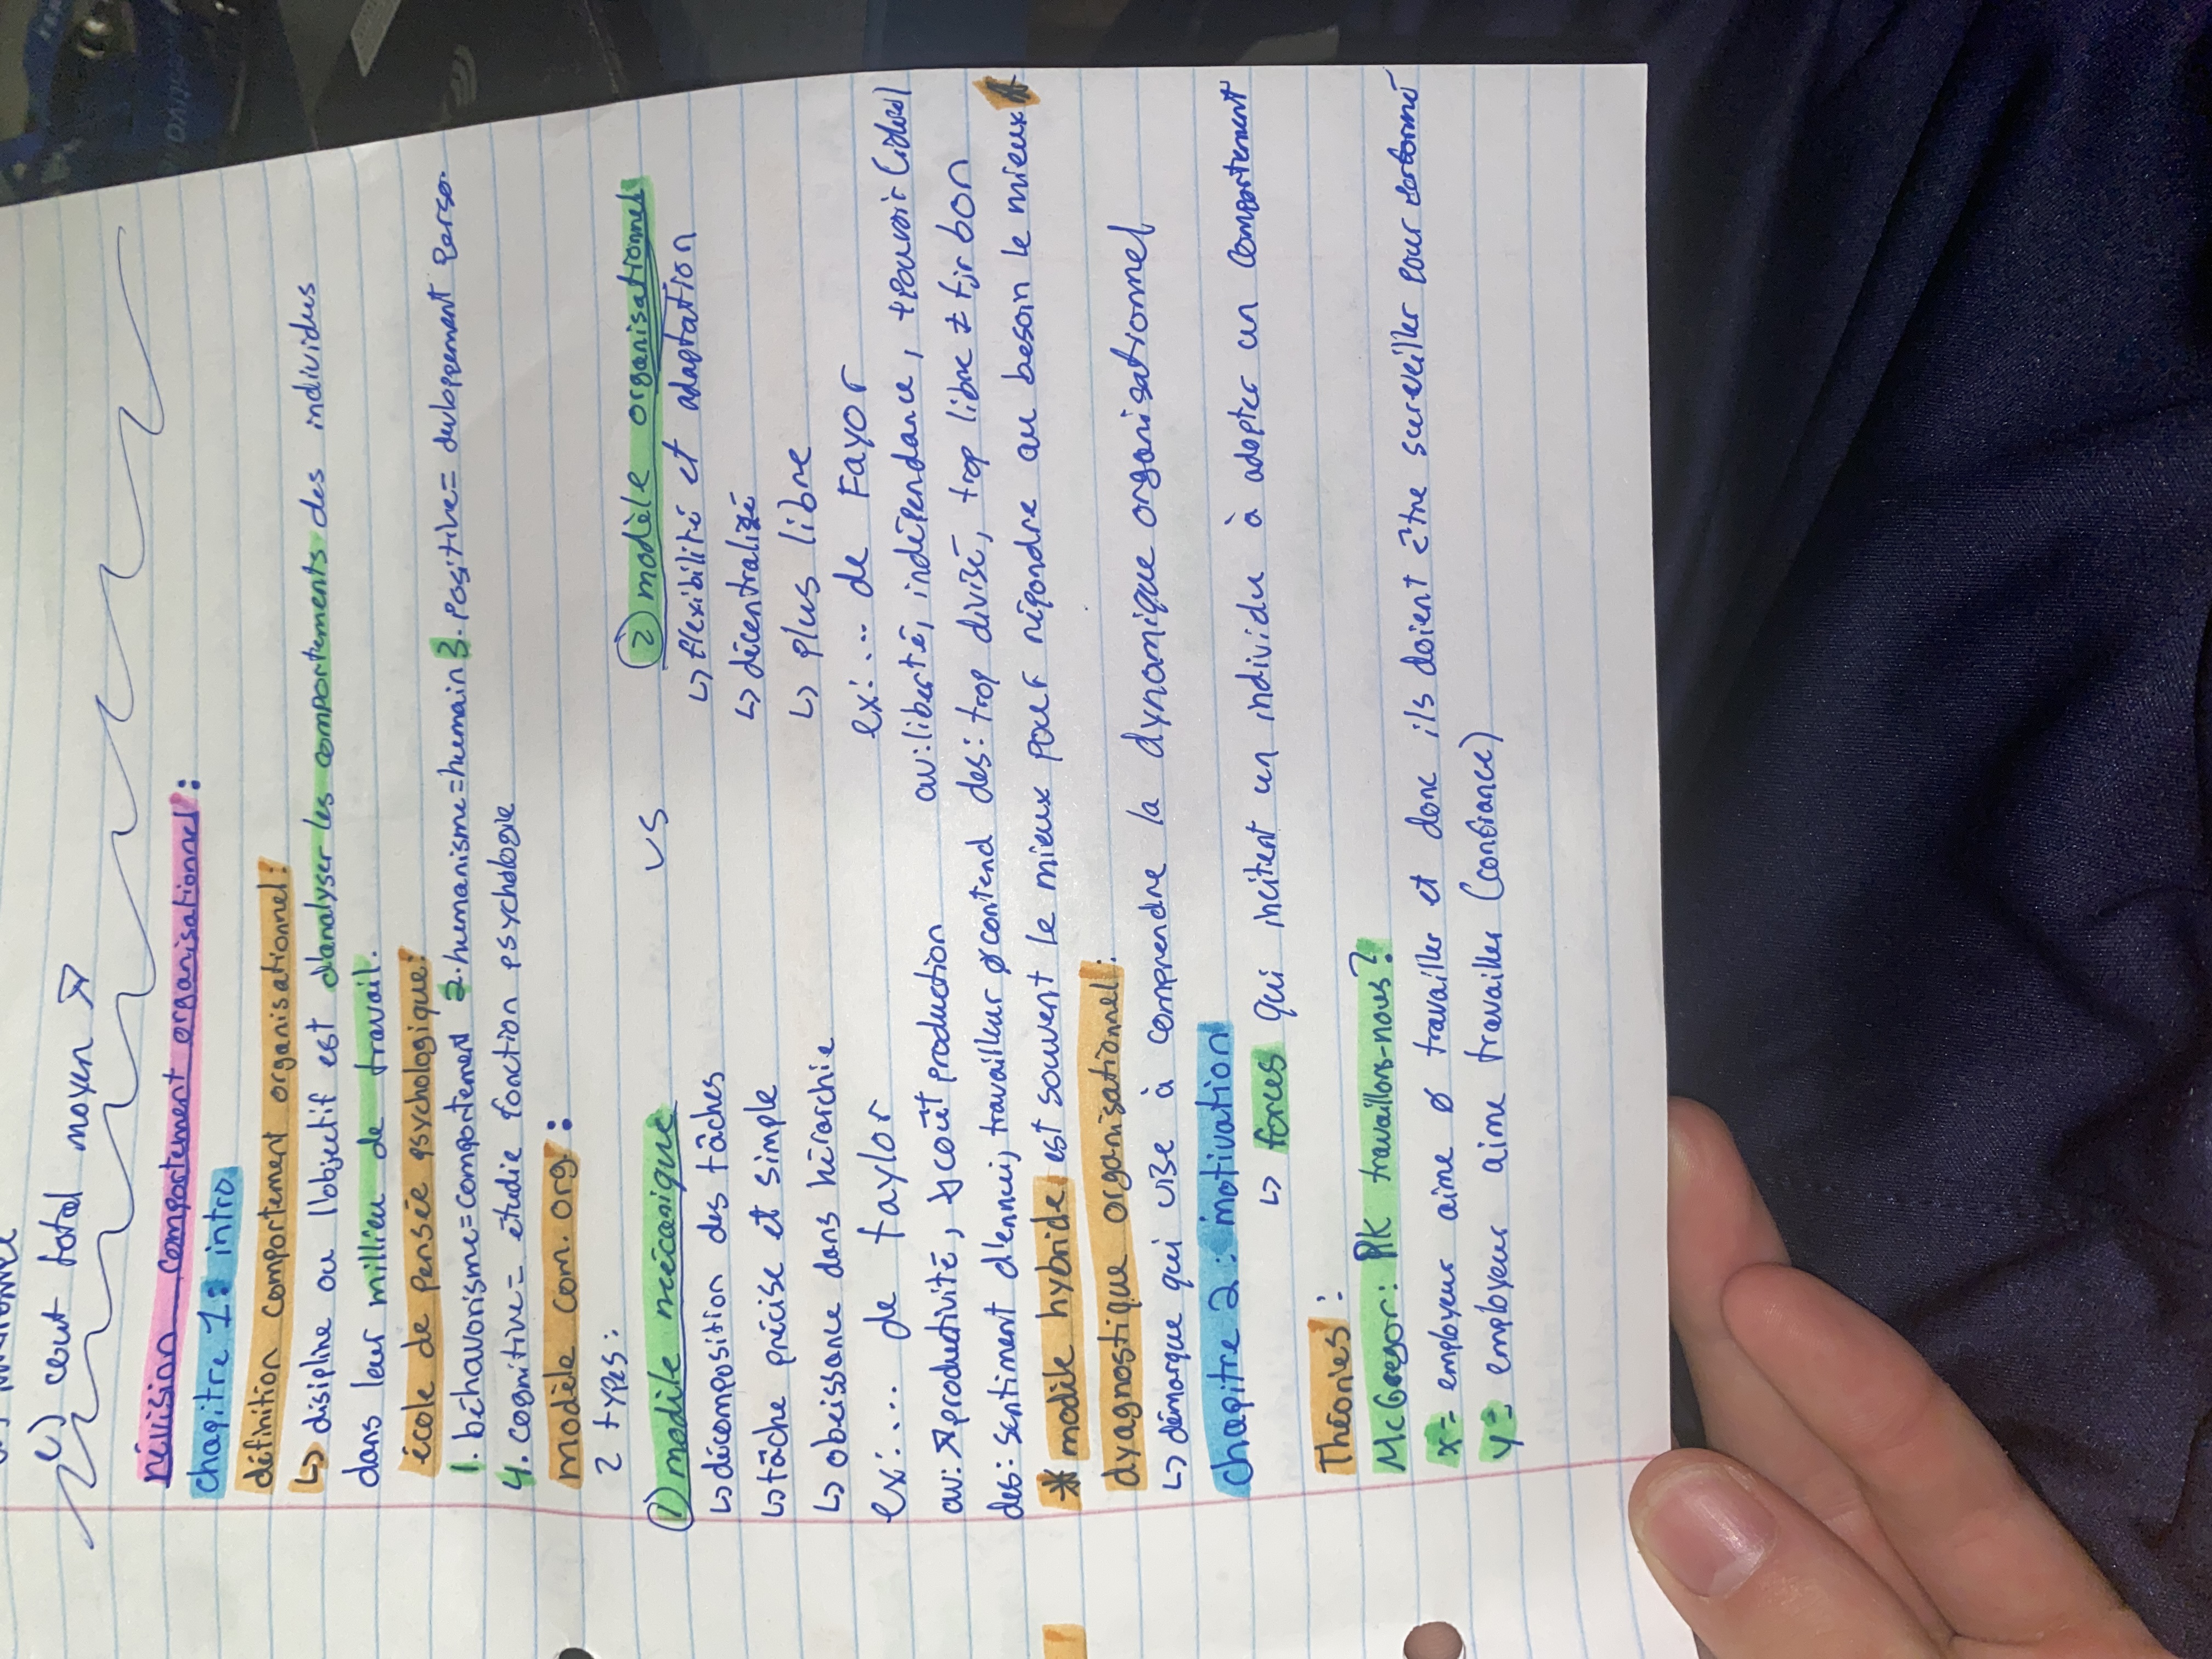 c) cout total moyen ↗
révision comportement organisationnel :
chapitre 1: intro
définition comportement organisationnel:
↳ disipline ou l'objectif est d'analyser les comportements des individus
dans leur millieu de travail.
école de pensée psychologique:
1. béhavorisme=comportement 2. humanisme=humain 3. positive= devloppement perso.
4. cognitive= étudie fonction psychologie
modèle com. org. :
2 types:
① modèle mécanique vs ② modèle organisationnel
↳ décomposition des tâches
↳ flexibilité et adaptation
↳ tâche précise et simple
↳ décentralisé
↳ obeissance dans hérarchie
↳ plus libre
ex: ... de taylor
ex: ... de Fayor
av: ↗ productivité, ↘ coût production
av: liberté, indépendance, + pouvoir
des: sentiment d'ennui, travailleur ø contend
des: trop divisé, trop libre ≠ tjr bon
* modèle hybride est souvent le mieux pour répondre au besoin le mieux *
dyagnostique organisationnel:
↳ démarque qui vise à comprendre la dynamique organisationnel
chapitre 2: motivation
↳ forces qui incitent un individu à adopter un comportement
Théories :
McGregor: PK travaillons-nous?
x= employeur aime ø travailler et donc ils doient être surveiller pour performé
y= employeur aime travailler (confiance)